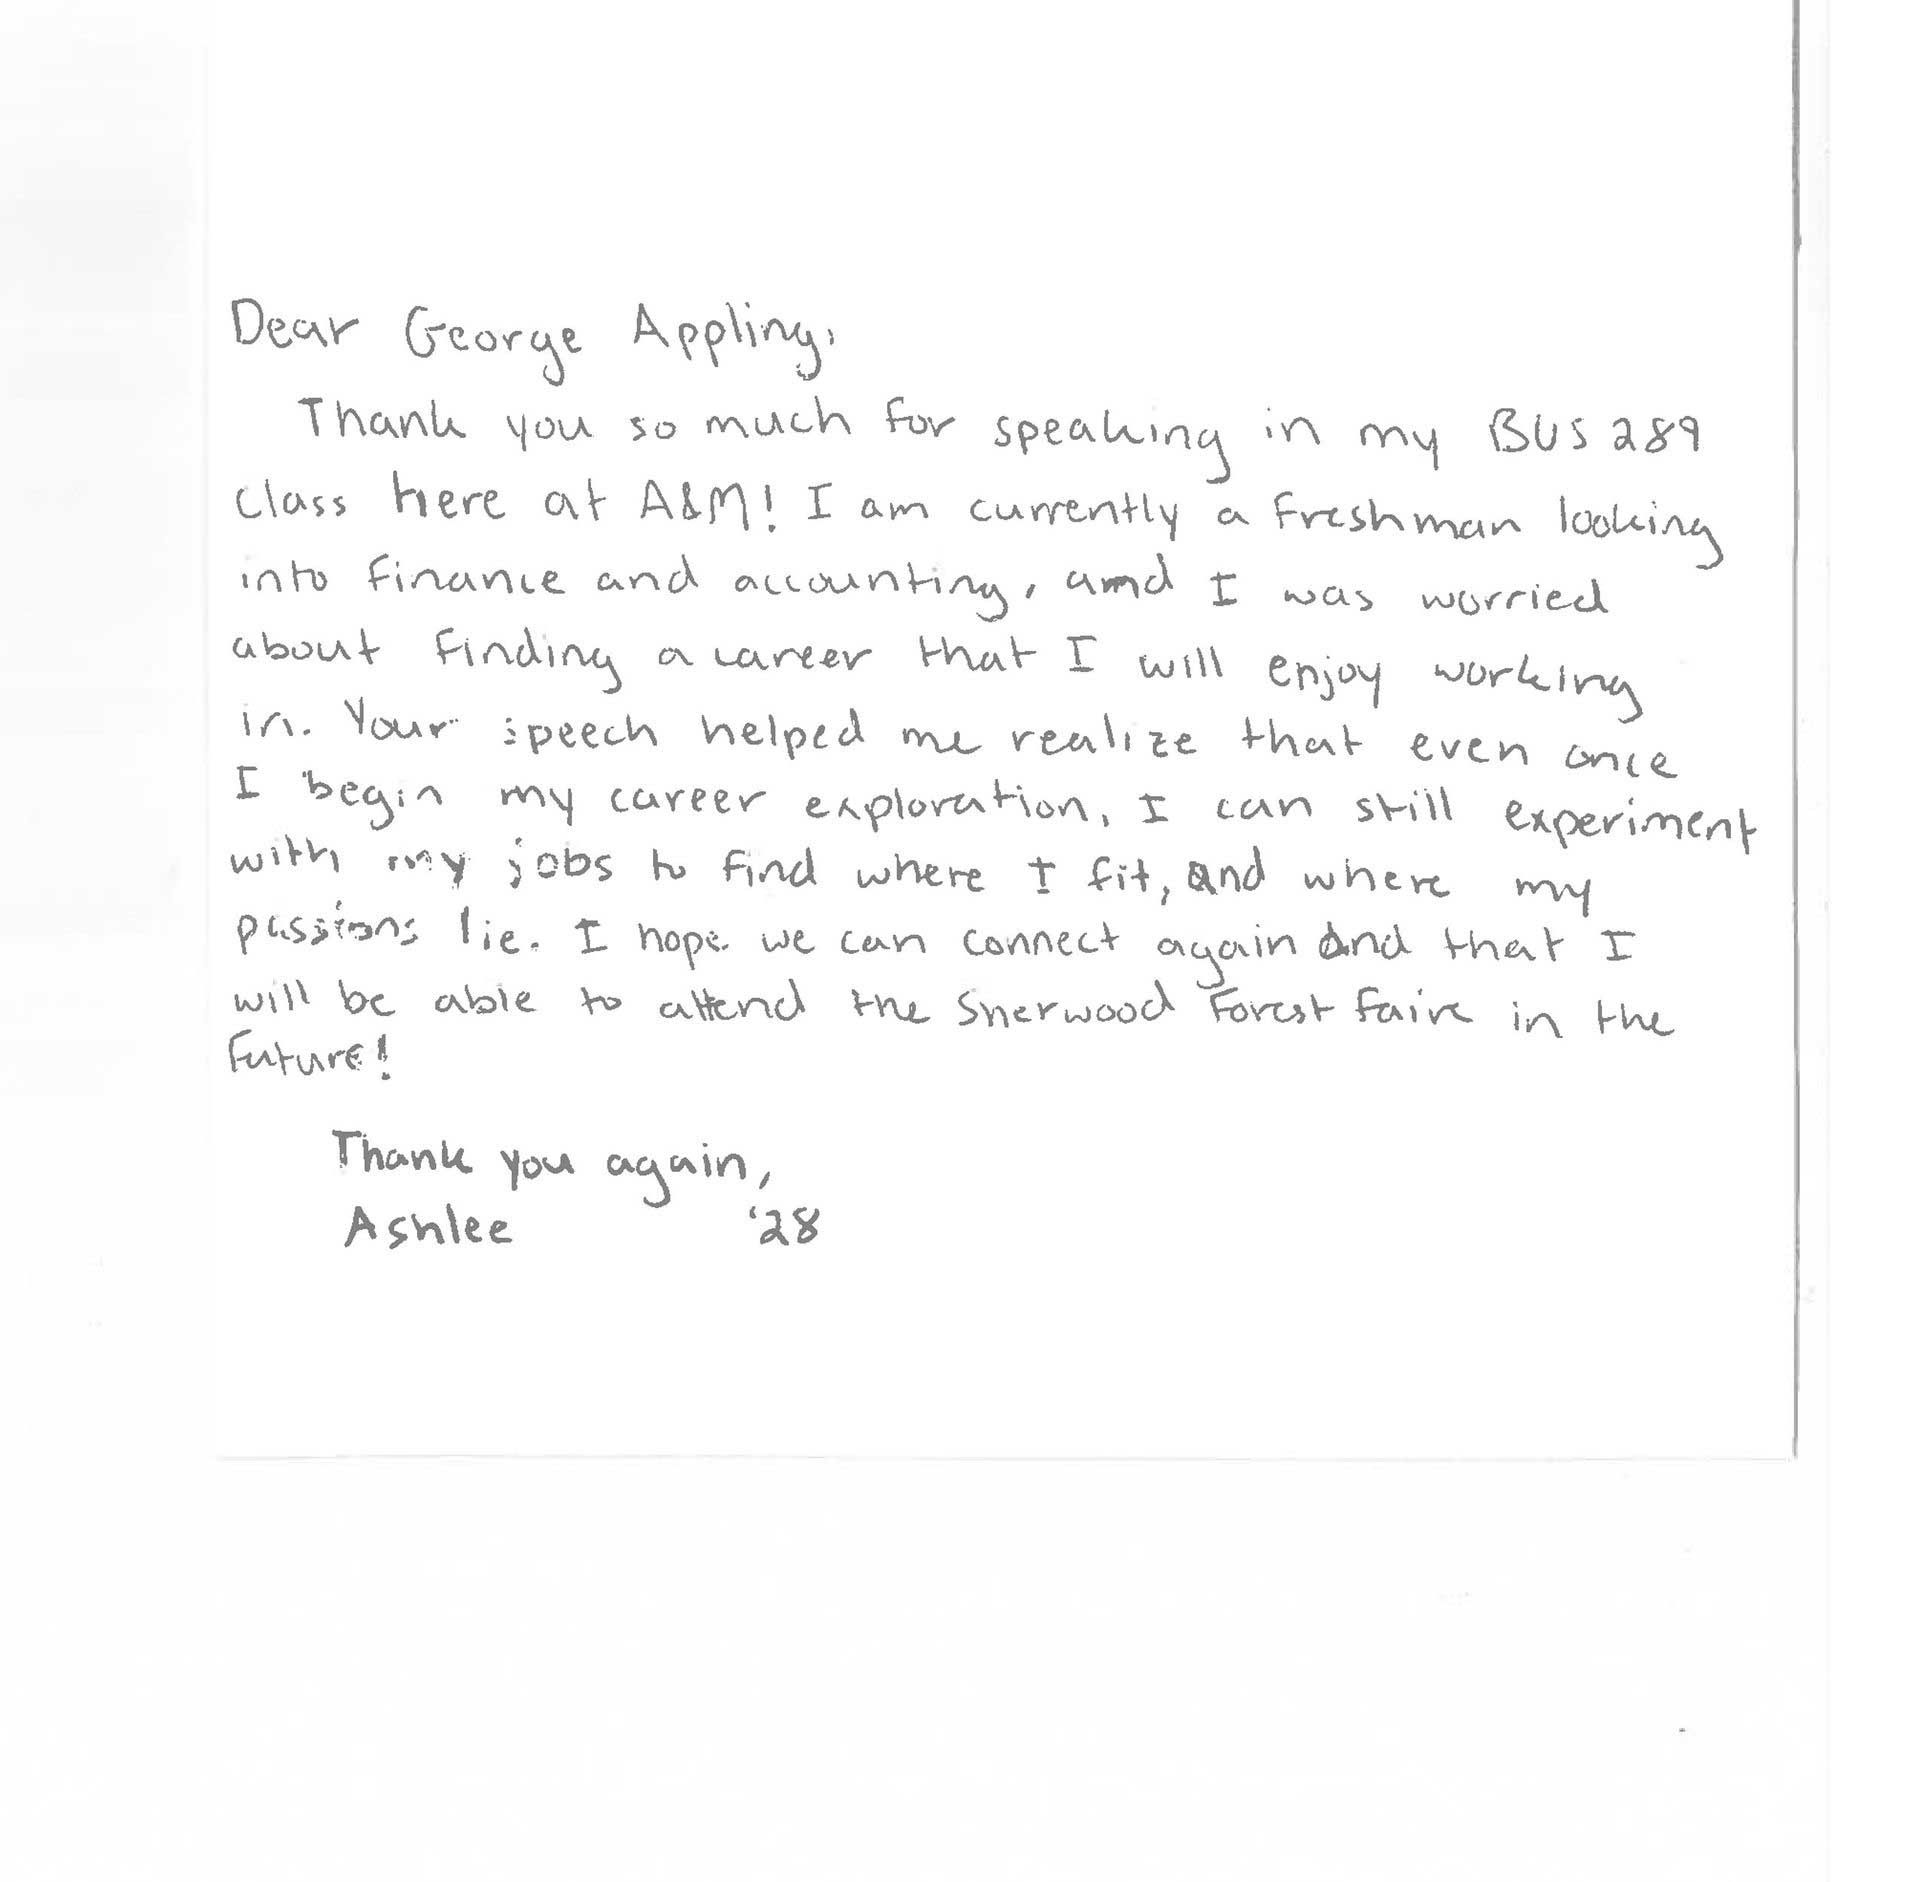 Dear George Appling,
Thank you so much for speaking in my BUS 289
class here at A&M! I am currently a freshman looking
into finance and accounting, amd I was worried
about finding a career that I will enjoy working
in. Your speech helped me realize that even once
I begin my career exploration, I can still experiment
with my jobs to find where I fit, and where my
passions lie. I hope we can connect again and that I
will be able to attend the Sherwood Forest Faire in the
future!
Thank you again,
Ashlee '28